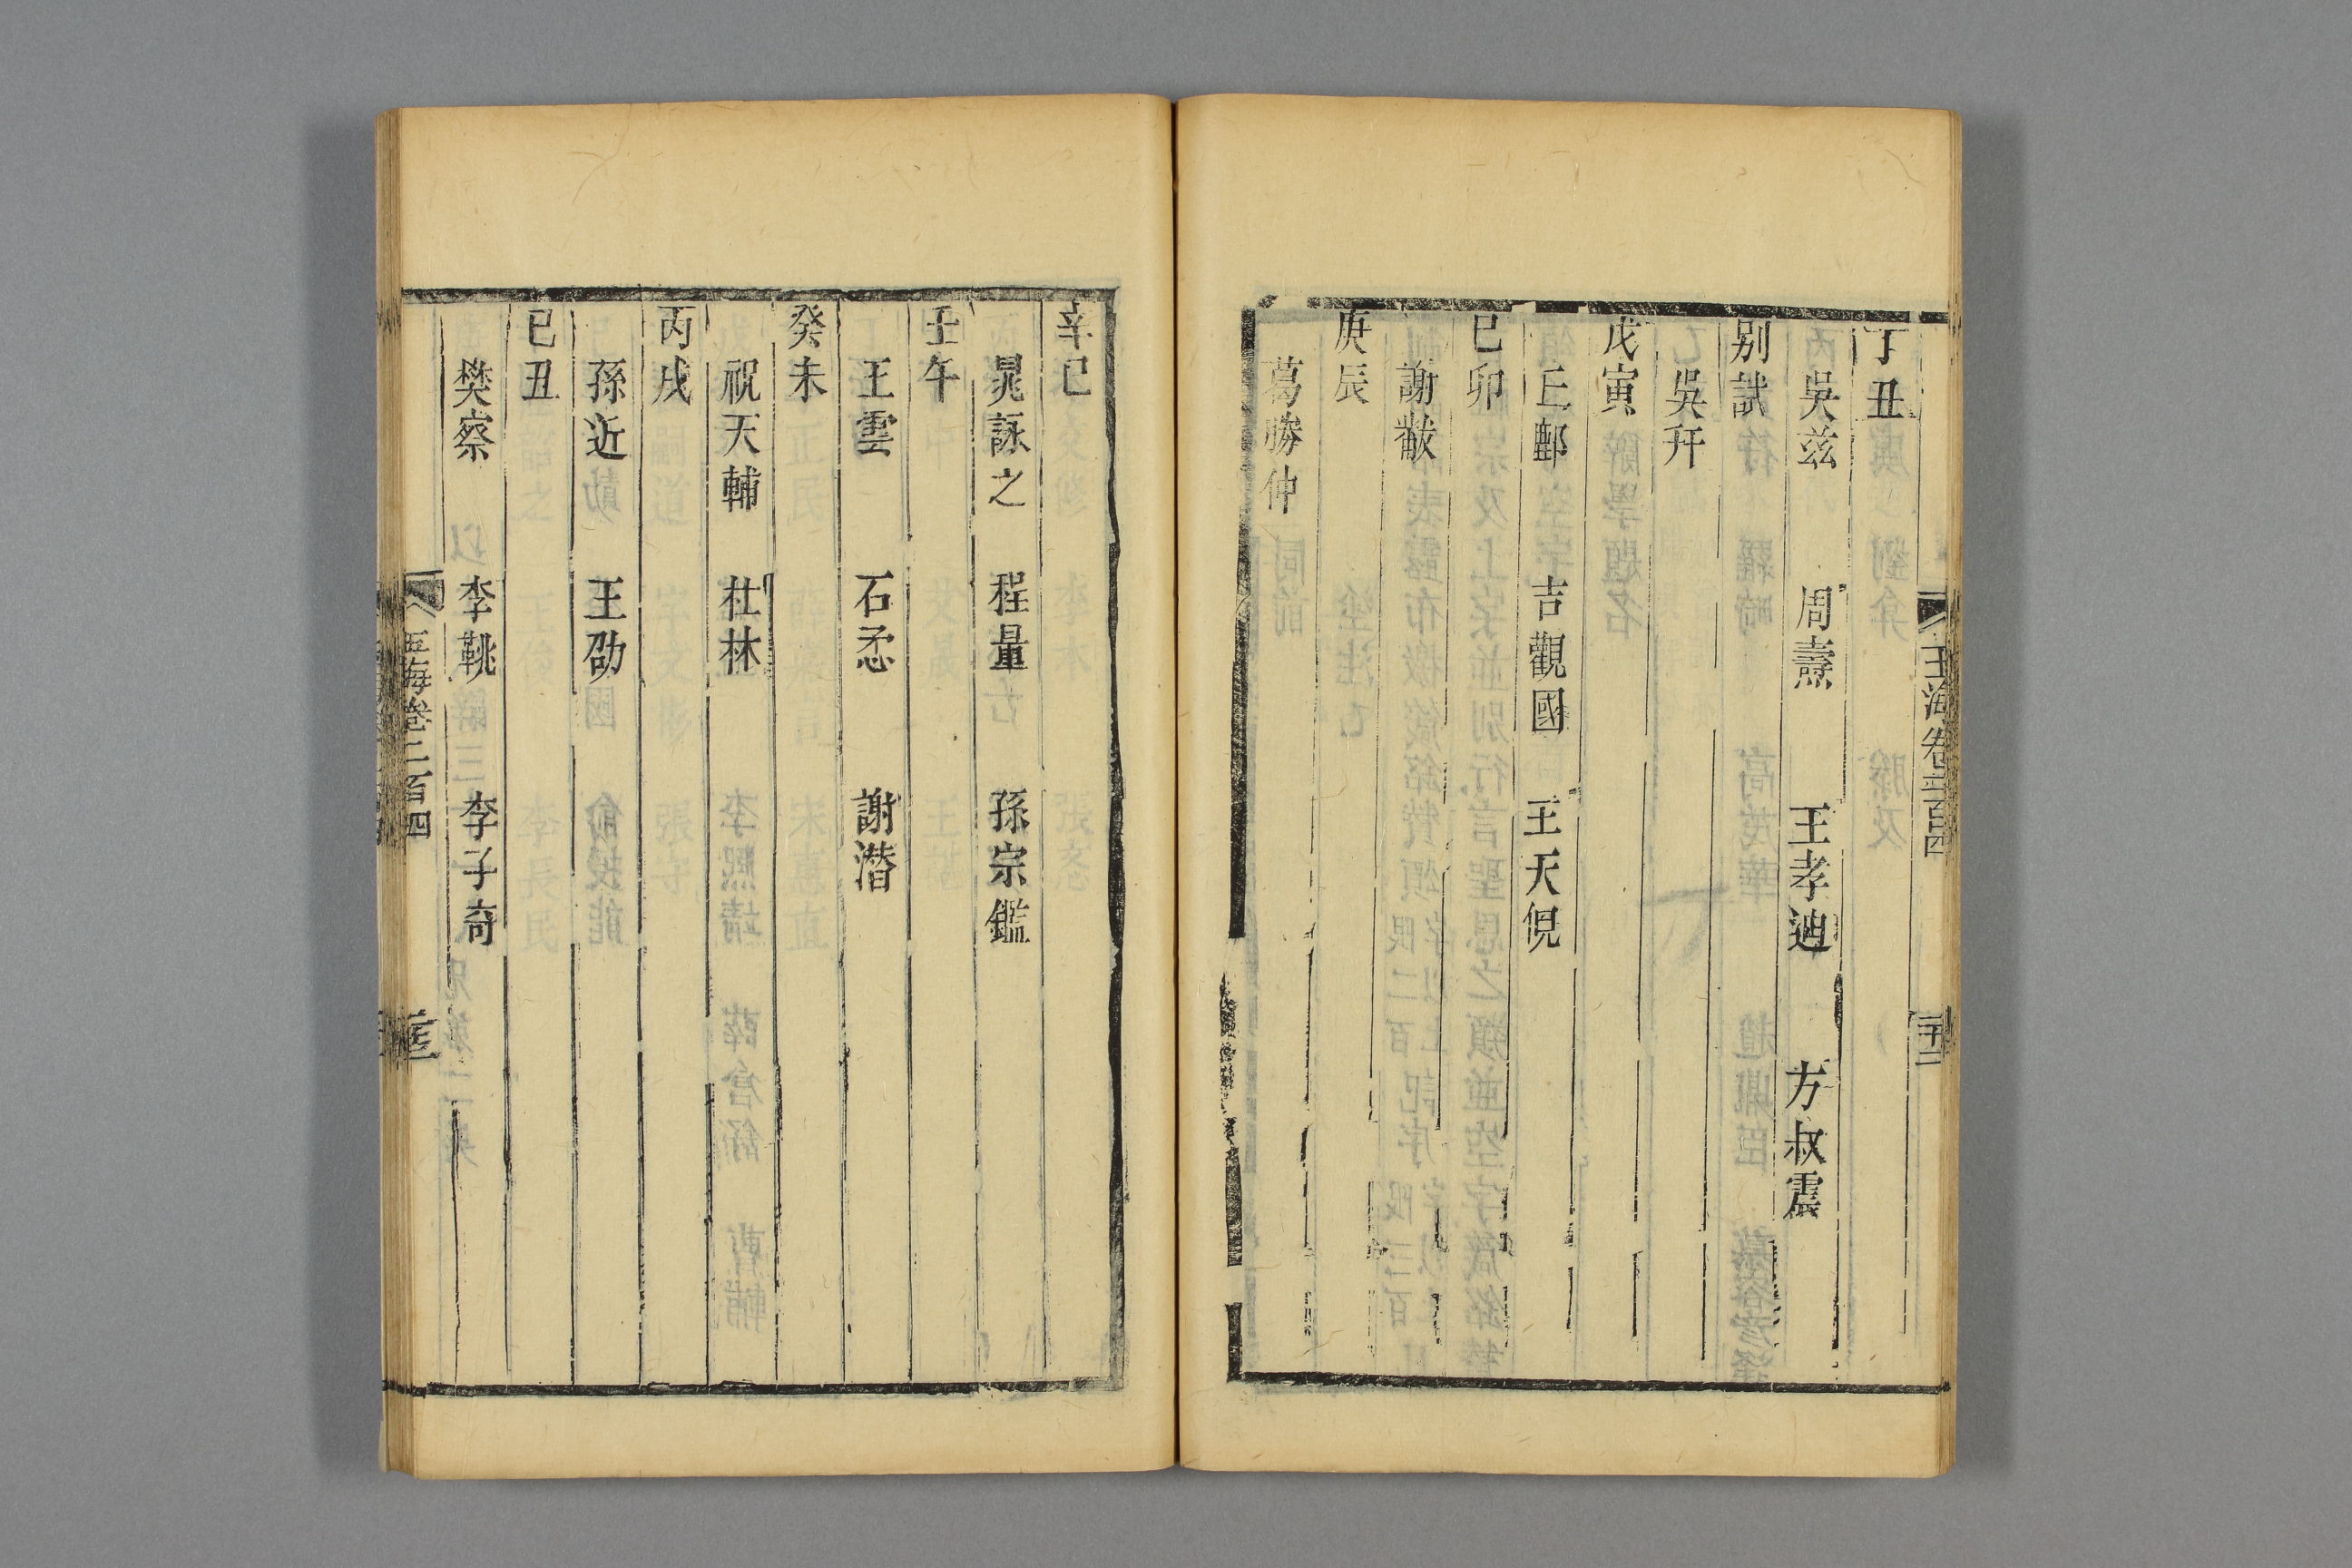 丁丑
吳兹 周燾 王孝迪 方叔震
别試
吳幵
戊寅
丘鄜 吉觀國 王天倪
已卯
謝黻
庚辰
葛勝仲
辛已
晁詠之 程量 孫宗鑑
壬午
王雲 石悫 謝潛
癸未
祝天輔 杜林
丙戌
孫近 王劭
已丑
樊察 李𩊓 李子奇
玉海卷二百四
玉海卷二百四